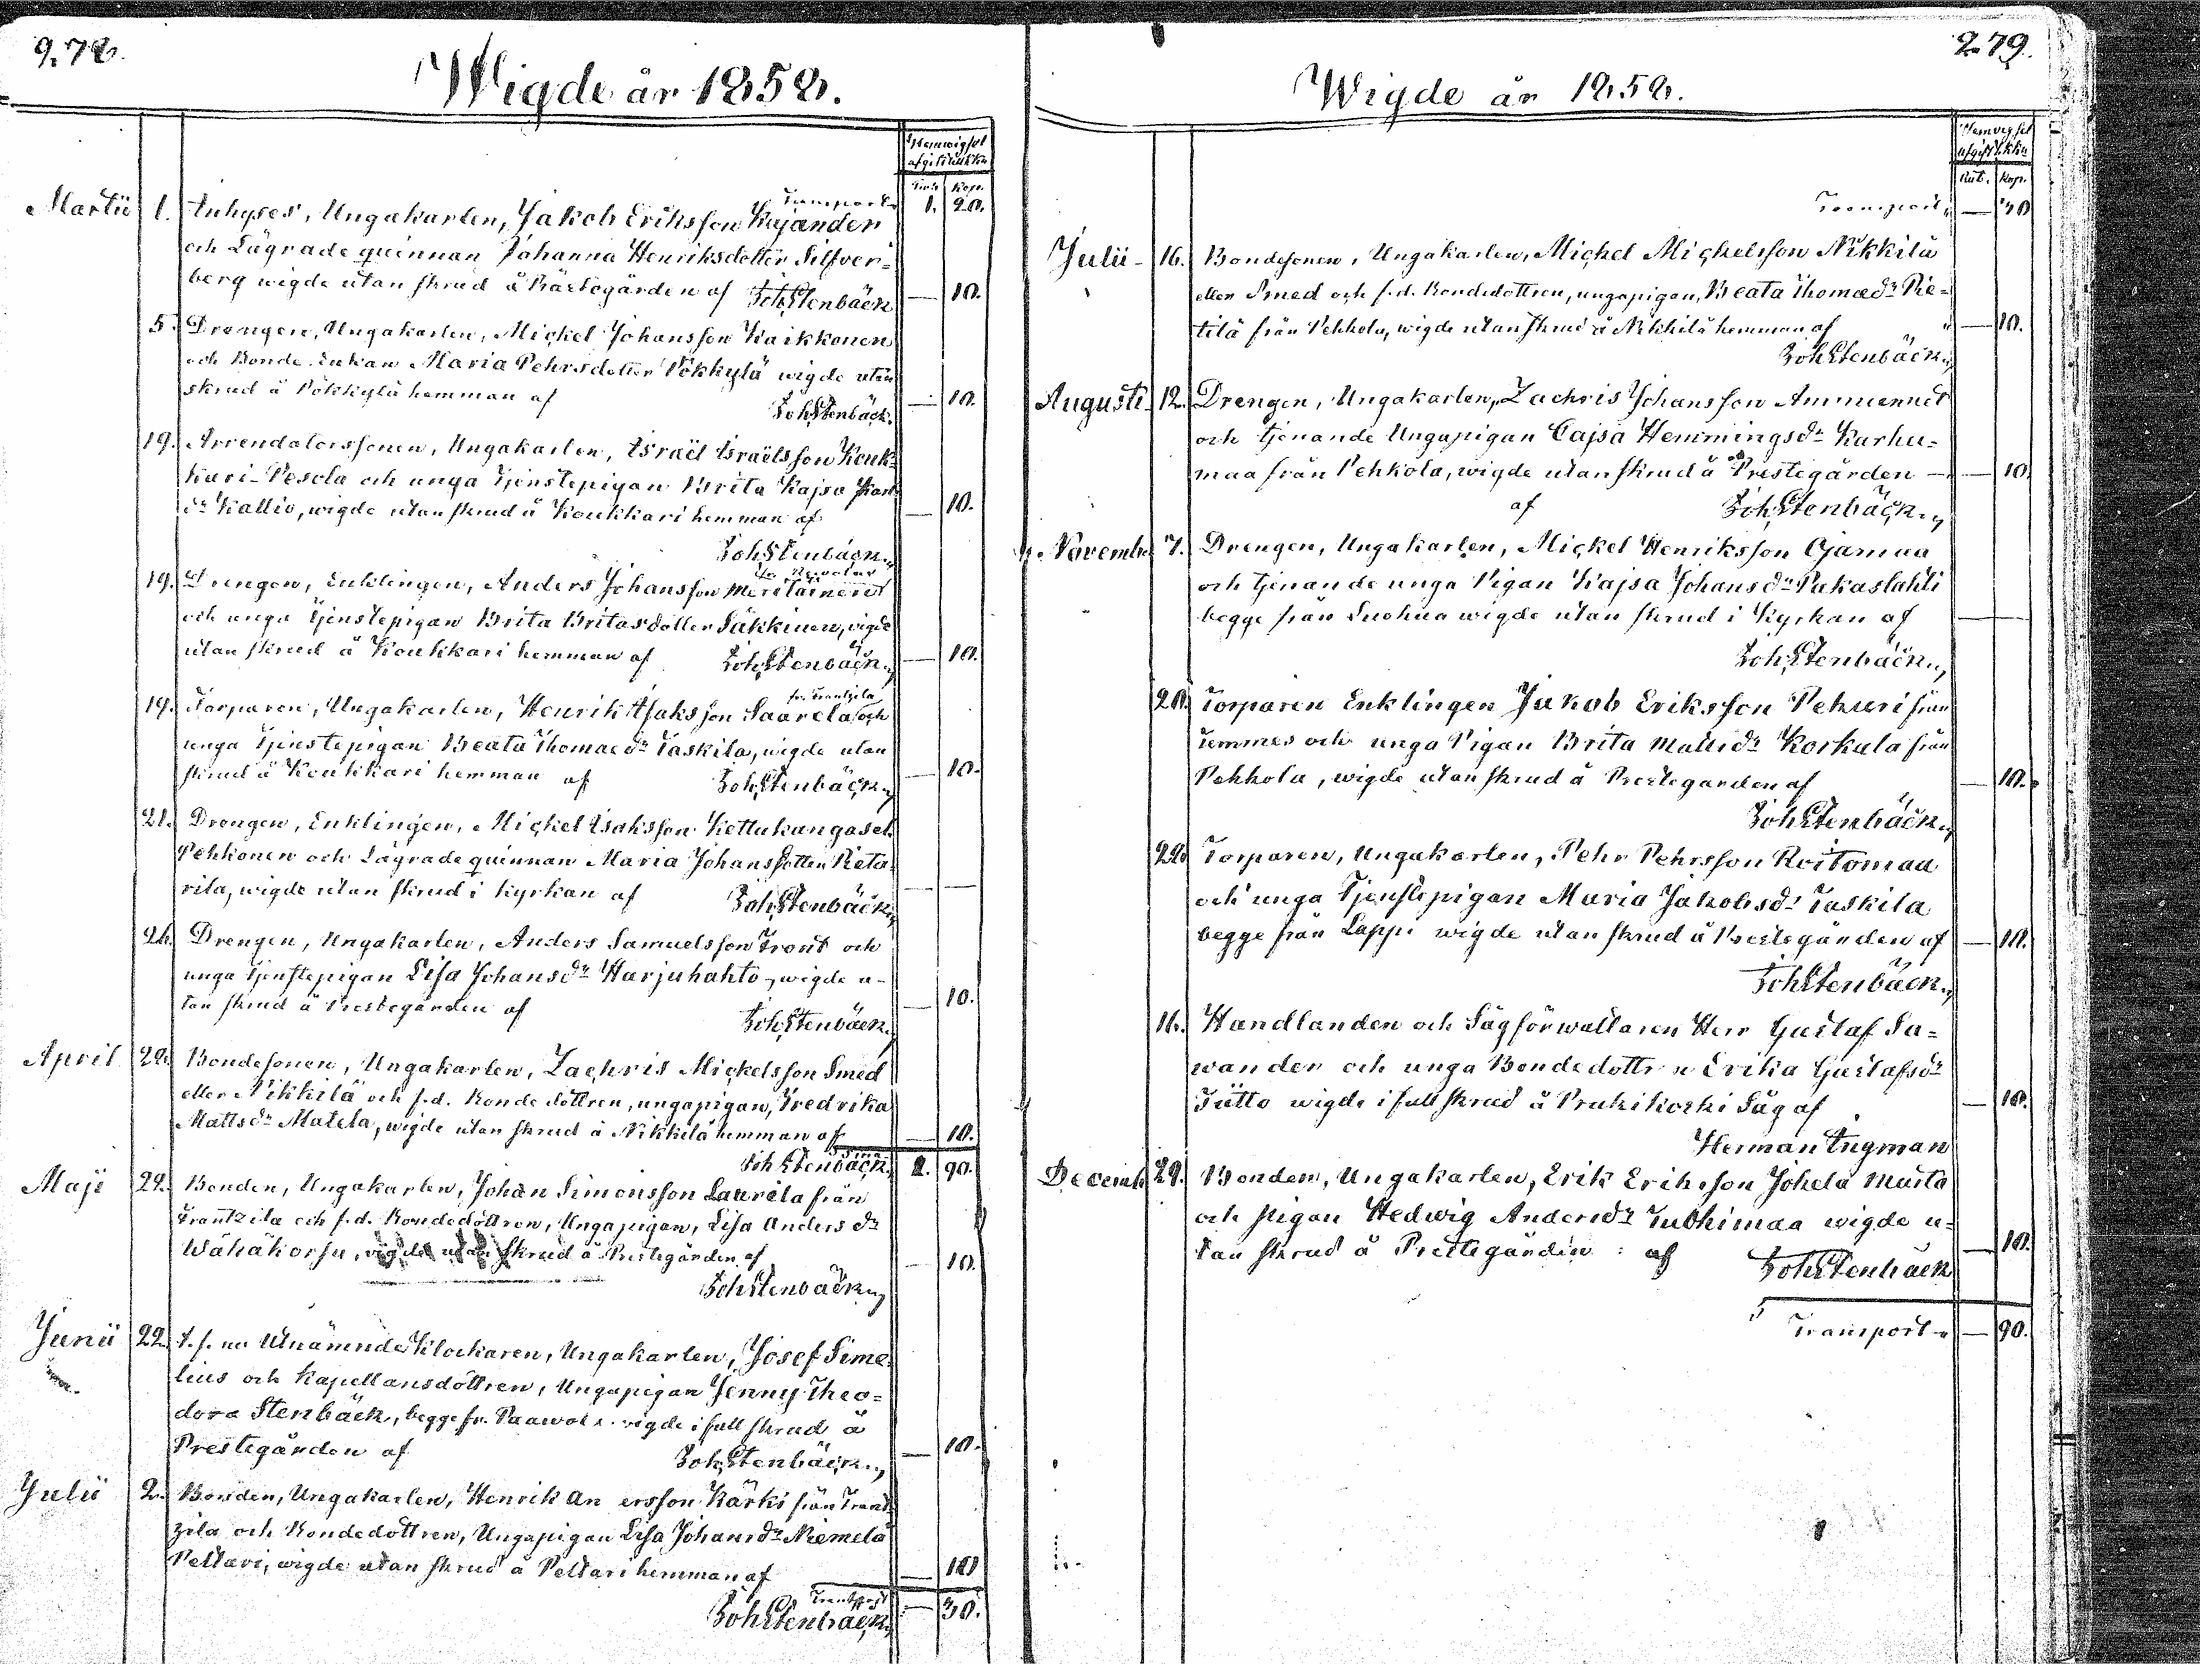 278.
Wigde år 1858.
Hemwigsel
afgift till Kkn
Rub. Kop.
Transport " 1. 20.
Martii 1. Inhyses, Ungakarlen, Jakob Eriksson Kajander
och Lägrade quinnan Johanna Henriksdotter Silfver=
berg wigde utan skrud å Prestegården af JohStenbäck — 10.
5. Drengen, Ungakarlen, Mickel Johansson Kaikkonen
och Bonde Enkan Maria Pehrsdotter Pökkylä wigde utan
skrud å Pökkylä hemman af JohStenbäck. — 10.
19. Arrendatorssonen, Ungakarlen, Israël Israëlsson Kouk=
kari-Pesola och unga Tjenstepigan Brita Kajsa Karls
dr Kallio, wigde utan skrud å Koukkari hemman af — 10.
JohStenbäck.
19. Drengen, Enklingen, Anders Johansson Meriläinen
och unga Tjenstepigan Brita Britasdotter Säkkinen, vigde
utan skrud å Koukkari hemman af JohStenbäck. — 10.
fr. Frantzila
19. Torparen, Ungakarlen, Henrik Isaksson Saarela och
unga Tjenstepigan Beata Thomæ dr Taskila, wigde utan
skrud å Koukkari hemman af JohStenbäck. — 10.
21. Drengen, Enklingen, Mickel Isaksson Kettukangas el.
Pehkonen och Lägrade quinnan Maria Johansdotter Pieta
rila, wigde utan skrud i Kyrkan af JohStenbäck — —
26. Drengen, Ungakarlen, Anders Samuelsson Trout och
unga Tjenstepigan Lisa Johans dr Harjuhahto, wigde u-
tan skrud å Prestegården af JohStenbäck. — 10.
April 22. Bondesonen, Ungakarlen, Zachris Mickelsson Smed
eller Nikkilä och f.d. Bonde dottren, ungapigan, Fredrika
Matts dr Matela, wigde utan skrud å Nikkilä hemman af — 10.
JohStenbäck. 2. 90.
Maji 22. Bonden, Ungakarlen, Johan Simonsson Laurila från
Frantzila och f.d. Bondedottren, Ungapigan, Lisa Anders dr
Wähäkorju, vigde utan skrud å Prestegården af — 10.
JohStenbäck.
Junii 22. T.f. Utnämnde Klockaren, Ungakarlen, Josef Sime
lius och Kapellansdottren, Ungapigan Jenny Theo=
dora Stenbäck, begge fr. Paawola vigde i full skrud å
Prestegården af JohStenbäck. — 10.
Julii 2. Bonden, Ungakarlen, Henrik An ersson Kärki från Frant
zila och Bondedottren, Ungapigan Lisa Johans dr Niemelä
Peltari, wigde utan skrud å Peltari hemman af — 10
Transport
JohStenbäck. — 30.
279.
Wigde år 1858.
Hemvigsel
afgift t. Kkn
Rub. Kop.
Transport " — 30
Julii 16. Bondesonen, Ungakarlen, Mickel Mickelsson Nikkilä
eller Smed och f.d. Bondedottren, ungapigan, Beata Thomæ dr Pie=
tilä från Pehkola, wigde utan skrud å Nikkilä hemman af " — 10.
JohStenbäck.
Augusti 12. Drengen, Ungakarlen, Zachris Johansson Ammunnet
och tjenande Ungapigan Cajsa Hemmings dr Karhu=
maa från Pehkola, wigde utan skrud å Prestegården — — 10
af JohStenbäck.
Novemb. 7. Drengen, Ungakarlen, Mickel Henriksson Ojamaa
och tjenande unga Pigan Kajsa Johans dr Pakaslahti
begge från Luohua wigde utan skrud i Kyrkan af —
JohStenbäck.
20. Torparen Enklingen Jakob Eriksson Pekuri från
Temmes och unga Pigan Brita Matts dr Korkala från
Pehkola, wigde utan skrud å Prestegården af — 10.
JohStenbäck.
22. Torparen, Ungakarlen, Pehr Pehrsson Roitomaa
och unga Tjenstepigan Maria Jakobs dr Taskila
begge från Lappi wigde utan skrud å Prestegården af — 10.
JohStenbäck.
16. Handlanden och Sågförwaltaren Herr Gustaf Sa=
wander och unga Bondedottr n Erika Gustafs dr
Tütto wigde i full skrud å Prukikoski Såg af — 10.
Herman Ingman
Decemb. 29. Bonden, Ungakarlen, Erik Eriksson Johela Marta
och pigan Hedwig Anders dr Tuohimaa wigde u=
tan skrud å Prestegården : af — 10.
JohStenbäck
Transport " — 90.